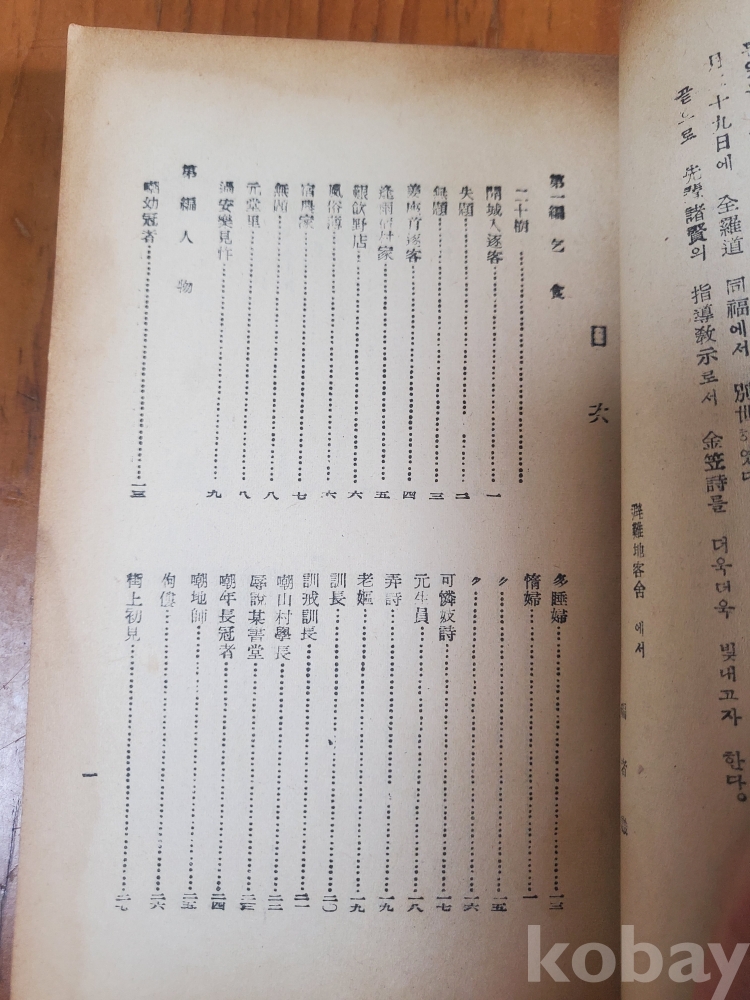 月 十九日에 全羅道 同福에서 別世하였다
끝으로 先輩諸賢의 指導敎示로서 金笠詩를 더욱더욱 빛내고자 한다。
避難地客舍에서
目次
第一編 乞食
二十樹……一
開城人逐客……一
失題……二
無題……三
姜座首逐客……四
逢雨宿村家……五
艱飮野店……六
風俗薄……六
宿農家……七
無題……八
元堂里……八
過安樂見作……九
第 編 人物
嘲幼冠者……一三
多睡婦……一三
惰婦……一
〃……一五
〃……一六
可憐妓詩……一七
元生員……一八
弄詩……一九
老嫗……一九
訓長……二〇
訓戒訓長……二一
嘲山村學長……二二
辱說某書堂……二三
嘲年長冠者……二四
嘲地師……二五
佝僂……二六
街上初見……二七
一
kobay